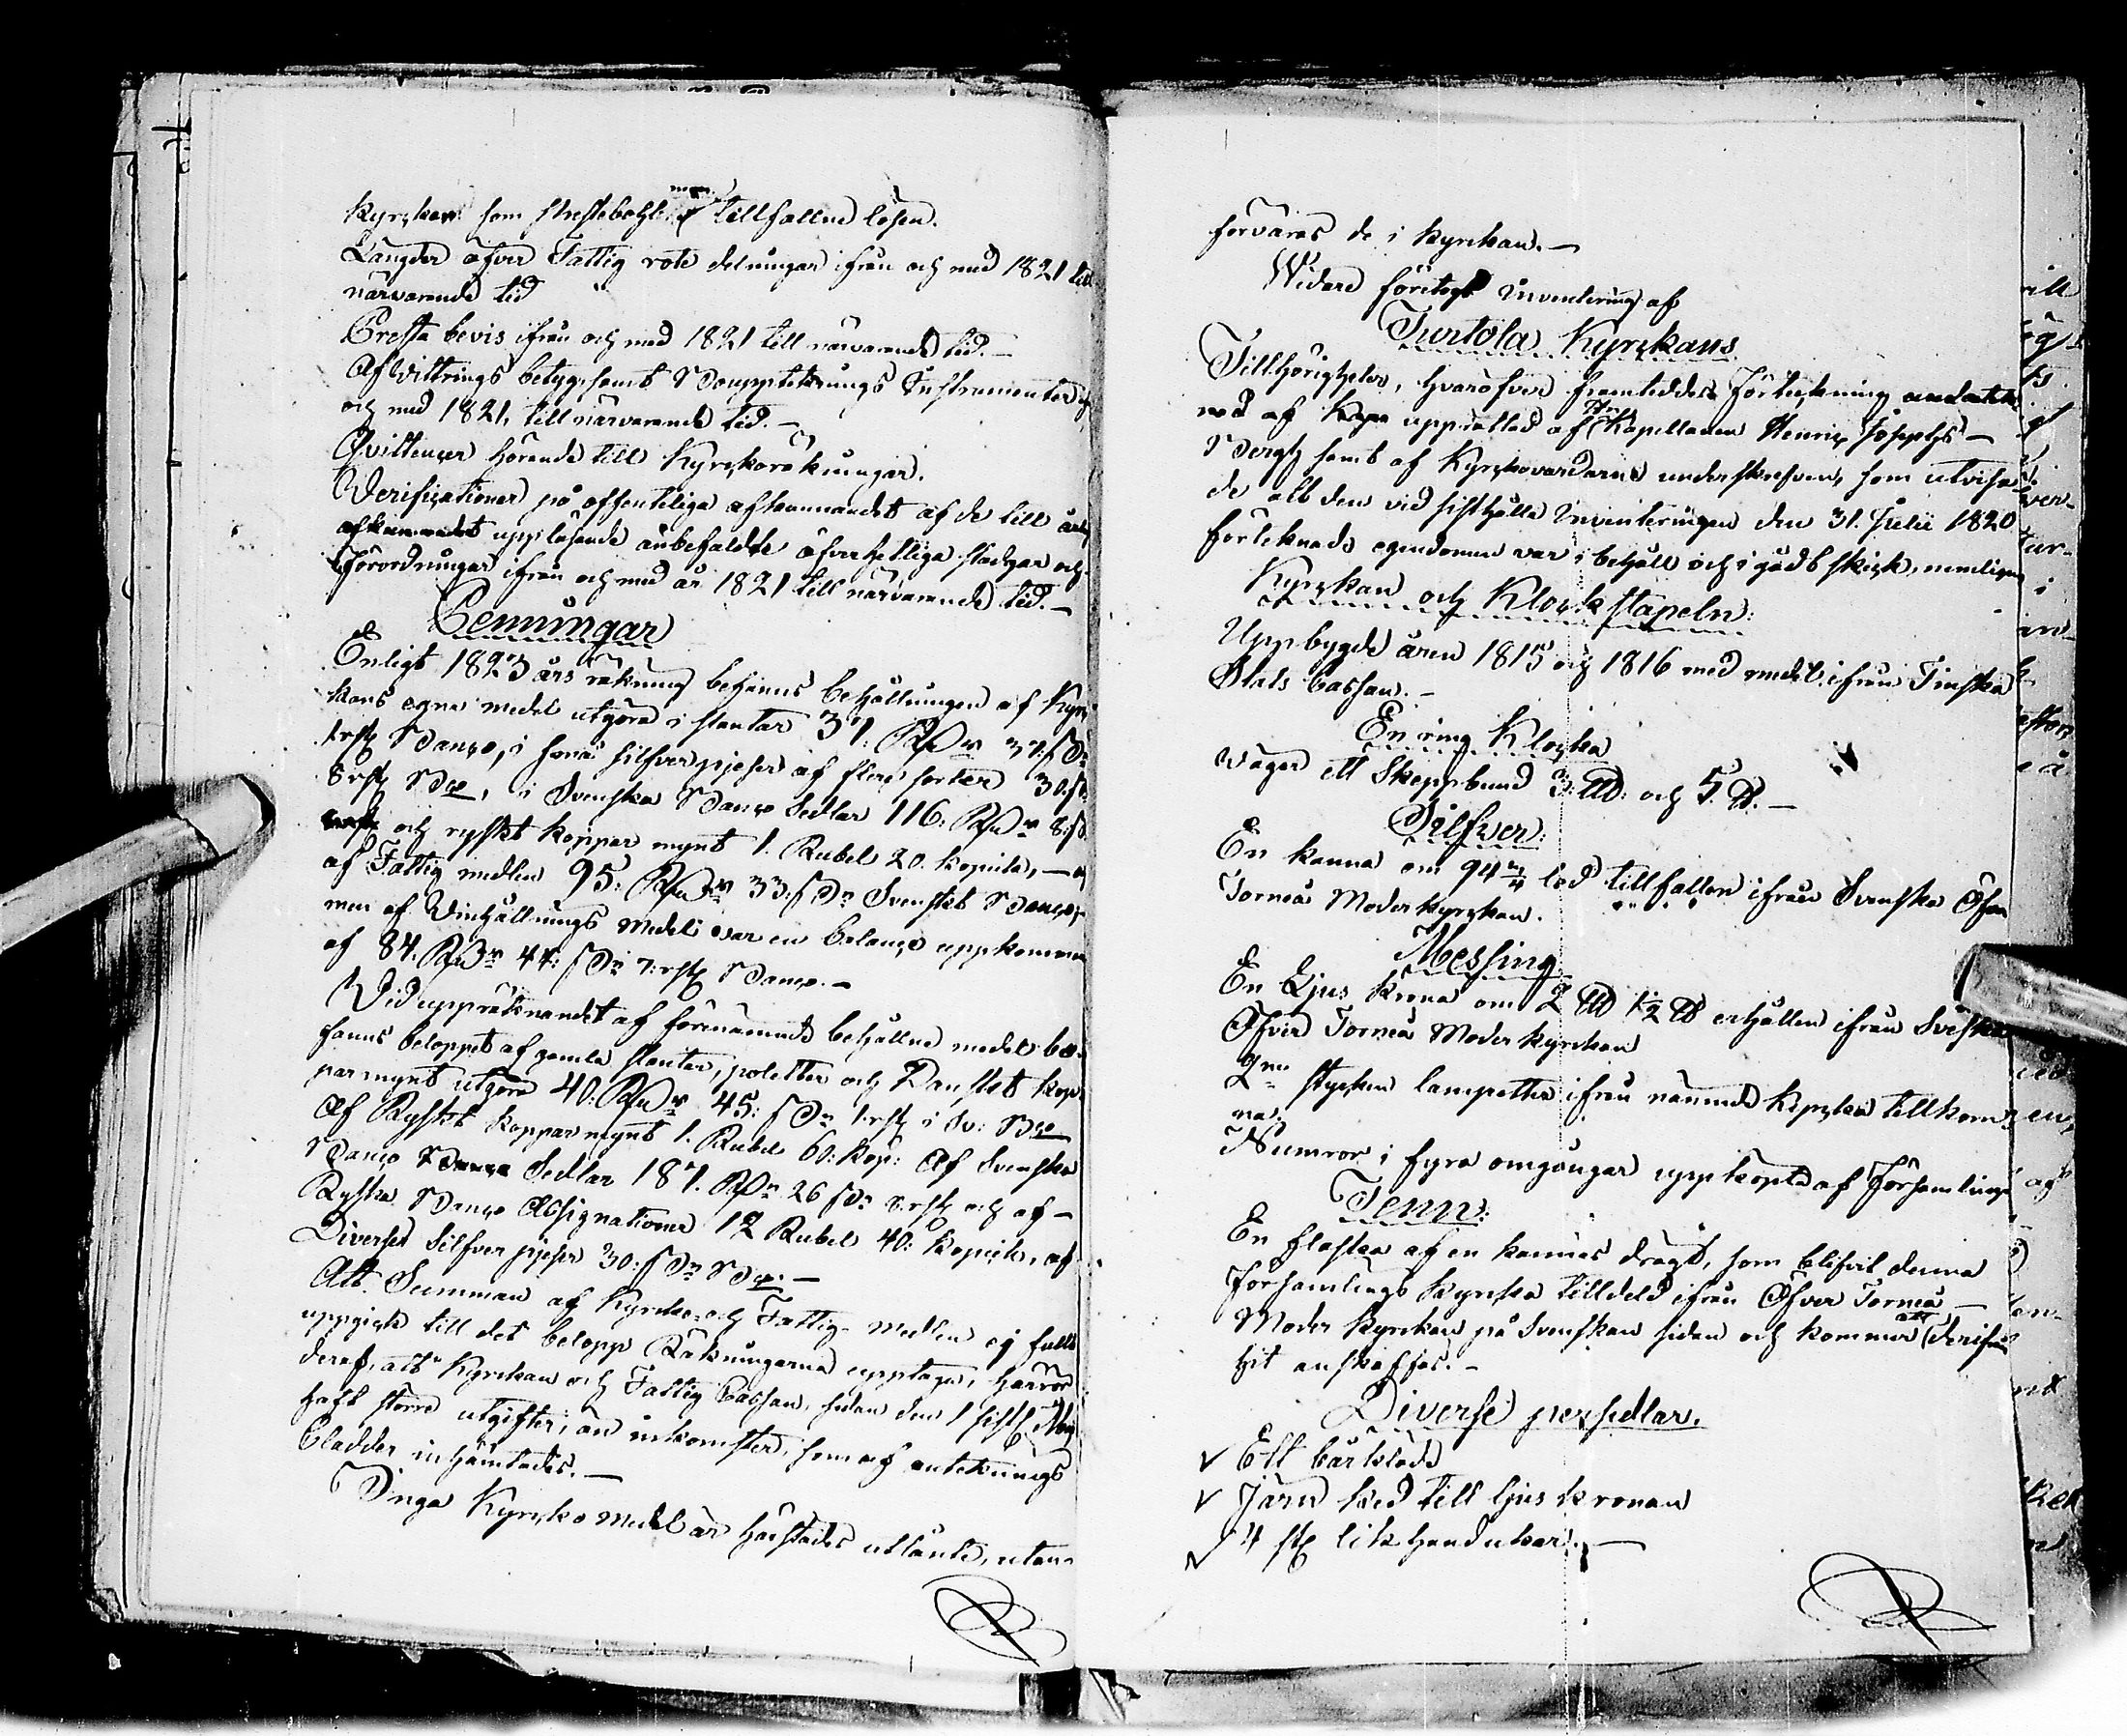 Kyrckan som tillfallne lösen.
Längder öfver Fattig rote delningar ifrån och med 1821 till
närvarande tid
Presta bevis ifrån och med 1821 till närvarande tid.-
Af Vittrings betyg, samt Instrumenter
och med 1821, till närvarande tid.-
Qvittencer hörande till Kyrckoräkningar.
Verificationer på offenteliga afkunnandet af de till
uppläsande anbefaldte öfverhetliga stadgar och
Förordningar ifrån och med år 1821 till närvarande tid.-
Penningar
Enligt 1823 års räkning befanns behållningen af Kyrc
kans egna medel utgöra i slantar 37. Rdr 37. s
1 rst Banco, i små silfver pjeser af flere sorter 30. s
8 rst Bco, i Svenska Banco Sedlar 116: Rdr 8: s
och ryskt koppar mynt 1. Rubel 20. kopeik, - och
af Fattig medlen 95: Rdr 33. s Svenskt Banco,
men af Vinhållnings Medel var en balance uppkommen
af 84. Rdr 44: s 7: rst Banco.-
Vid uppräknandet af förenämnde behållne medel be-
fanns beloppet af gamla slantar, poletter och Danskt kop-
par mynt utgöra 40: Rdr 45: s 1 rst i Sv: Bco
Af Ryskt koppar mynt 1. Rubel 60: kop: Af Svenska
Banco Sedlar 187. Rdr 26 s 8 rst och af -
Ryska Banco Assignationer 12 Rubel 40: kopeik, af
Diverse Silfver pjeser 30: s Bco.-
Att Summan af Kyrcko- och Fattig- medlen ej fullt
uppgick till det belopp Räkningarna upptaga, härrör
deraf, att Kyrckan och Fattig Cassan, sedan den 1 sistl. Maij
haft större utgifter, än inkomster, som af antecknings
Bladder inhämtades.-
Inga Kyrcko medel är härstädes utlånte, utan
förvaras de i kyrckan.-
Widare företogs Inventering af
Turtola Kyrckans
Tillhörigheter, hvaröfver framteddes Förteckning
med af upprättad af Hr Kapellanen Henric Josephs-
Bergh samt af Kyrckovärdarne underskrefven, som utvisa-
de att den vid sisthållne Inventeringen den 31. Julii 1820
förteknade egendomen var i behåll och i godt skick, nemligen
Kyrckan och Klockstapeln:
Uppbygde åren 1815 och 1816 med medel ifrån Finska
Stats Cassan.-
En ring Klocka
Wäger ett Skeppund 3: L℔: och 5. ℔.-
Silfver:
En kanna om 94 3/4 lod tillfallen ifrån Svenska Öfver
Torneå Moderkyrckan.
Messing
En Ljus krona om 2 L℔ 1/2 ℔ erhållen ifrån Svenska
Öfver Torneå Moder kyrckan
2ne stycken lampetter ifrån nämnde Kyrcka tillkom-
na,
Numror i fyra omgångar uppköpte af Församlingen
Tenn:
En flaska af en kannas drägt, som blifvit denna
Församlings Kyrcka tilldeld ifrån Öfver Torneå -
Moder kyrckan på Svenskan sidan och kommer att derifrån
hit anskaffas.-
Diverse persedlar.
✓ Ett bårkläde
✓ Järn ked till ljus kronan
✓ 4 st likhanduker.-